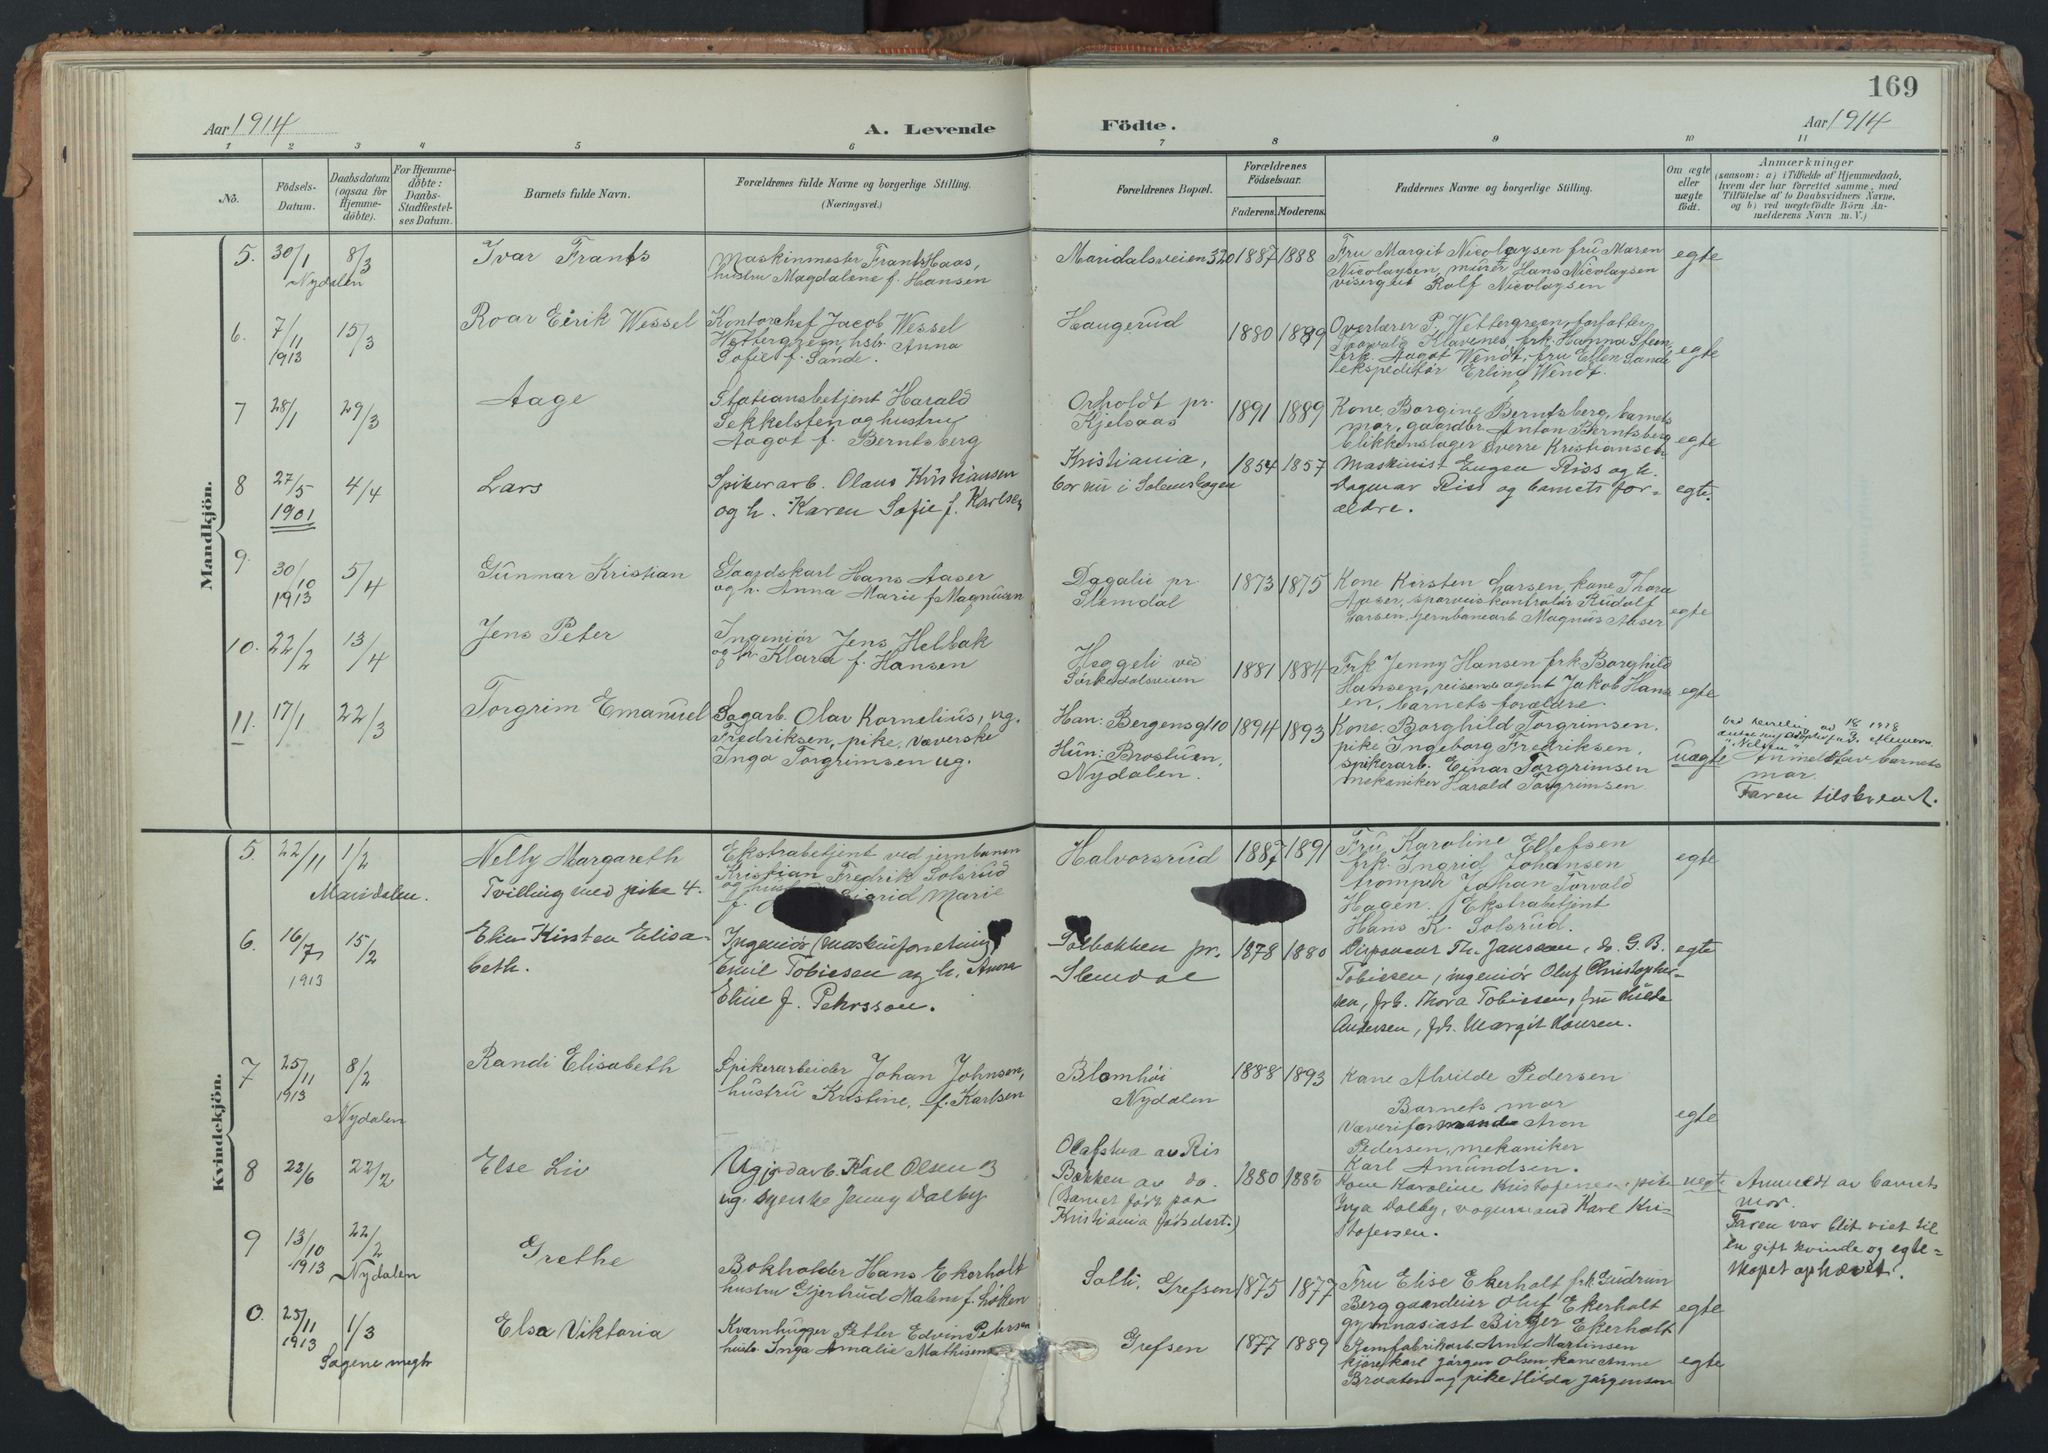 169
Aar 1914
A. Levende
Födte.
Aar 1914
1 2 3 4 5 6 7 8 9 10 11
No.
Födsels-
Datum.
Daabsdatum
(ogsaa for
Hjemme-
döbte).
For Hjemme-
döbte:
Daabs-
Stadfæstel-
ses Datum.
Barnets fulde Navn.
Forældrenes fulde Navne og borgerlige Stilling.
(Næringsvei.)
Forældrenes Bopæl.
Forældrenes
Födselsaar.
Faderens. Moderens.
Faddernes Navne og borgerlige Stilling.
Om ægte
eller
uægte
födt.
Anmærkninger
(saasom: a) i Tilfælde af Hjemmedaab,
hvem der har forrettet samme, med
Tilföielse af to Daabsvidners Navne,
og b) ved uægtefödte Börn An-
melderens Navn m. V.)
Mandkjön.
5. 30/1 8/3
Nydalen
Ivar Frants
Maskinmester Frants Haas,
hustru Magdalene f. Hansen
Maridalsveien 320
1887 1888
Fru Margit Nicolaysen fru Maren
Nicolaysen, murer Hans Nicolaysen
visergut Rolf Nicolaysen
egte
6. 7/11 1913 15/3
Roar Eirik Wessel
Kontorchef Jacob Wessel
Wettergreen, hstr. Anna
Sofie f. Sande.
Haugerud
1880 1889
Overlærer P. Wettergreen, forfatter
Klavenes, frk. Hanna Steen,
frk. Aagot Wendt, fru Ellen Sande
ekspeditør Erling Wendt.
egte
7 28/1 29/3
Aage
Stationsbetjent Harald
Sekkelsten og hustru
Aagot f. Berntsberg
Orholdt pr.
Kjelsaas
1891 1889
Kone Borgine Berntsberg, barnets
mor, gaardbr Anton Berntsberg
blikkenslager Sverre Kristiansen
egte
8 27/5 1901 4/4
Lars
Spikerarb. Olaus Kristiansen
og h. Karen Sofie f. Karlsen
Kristiania,
bor nu i Solemskogen
1854 1857
Maskinist Eugen Riss og h.
Dagmar Riss og barnets for-
ældre.
egte.
9. 30/10 1913 5/4
Gunnar Kristian
Gaardskarl Hans Aaser
og h. Anna Marie f. Magnusen
Dagalie pr.
Slemdal
1873 1875
Kone Kirsten Larsen, kone Thora
Aaser, sporveiskontrolør Rudolf
Larsen, jernbanearb Magnus Aaser
egte
10. 22/2 13/4
Jens Peter
Ingeniør Jens Helbak
og h. Klara f. Hansen
Heggeli ved
Sørkedalsveien
1881 1884
Frk Jenny Hansen frk Borghild
Hansen, reisende agent Jakob Hans
en, barnets forældre.
egte
11. 17/1 22/3
Torgrim Emanuel
Sagarb. Olav Kornelius, ug.
Fredriksen, pike, væverske
Inga Torgrimsen ug.
Han: Bergensg 10
Hun: Brostuen,
Nydalen.
1894 1893
Kone Borghild Torgrimsen.
pike Ingeborg Fredriksen,
spikerarb. Einar Torgrimsen
mekaniker Harald Torgrimsen
uægte
"Nilsen"
Anmeldt av barnets
mor.
Faren tilskrevet.
Kvindekjön.
5. 22/11 1/2
Maridalen.
Nelly Margareth
Tvilling med pike 4.
Ekstrabetjent ved jernbanen
Kristian Fredrik Solsrud
og hustru Sigrid Marie
Halvorsrud
1887 1891
Fru Karoline Ellefsen
frk. Ingrid Johansen
tromper Johan Torvald
Hagen. Ekstrabetjent
Hans K. Solsrud.
egte
6. 16/7 1913 15/2
Elin Kirsten Elisa-
beth.
Ingeniør (maskinforretning)
Emil Tobiesen og h. Anna
Eline f. Pehrsson.
Solbakken pr.
Slemdal
1878 1880
Disponent Th. Janssen, do. G. B.
Tobiesen, ingeniør Oluf Christopher-
sen, frk. Thora Tobiesen, fru Hulda
Andersen, frk. Margit Hansen.
egte
7 25/11 1913 8/2
Nydalen
Randi Elisabeth
Spikerarbeider Johan Johnsen,
hustru Kristine, f. Karlsen
Blomhöi
Nydalen
1888 1893
Kone Alvilde Pedersen
Barnets mor
Væveriformand Aron
Pedersen, mekaniker
Karl Amundsen.
egte
8 22/6 22/2
Else Liv
Ug jordarb. Karl Olsen og
ug. syerske Jenny Dalby
Olafstua av Ris
Bakken av do.
(Barnet født paa
Kristiania fødselsst.)
1880 1885
Kone Karoline Kristofersen, pike
Inga Dalby, vognmand Karl Kri-
stofersen.
uegte
Anmeldt av barnets
mor.
Faren var blit viet til
en gift kvinde og egte-
skapet ophævet.
9 13/10 1913 22/2
Nydalen
Grethe
Bokholder Hans Ekerholt
hustru Gjertrud Malene f. Løken
Solli, Grefsen
1875 1877
Fru Elise Ekerholt frk Gudrun
Berg gaardeier Oluf Ekerholt
gymnasiast Birger Ekerholt
egte
0. 25/11 1913 1/3
Sagene megh
Elsa Viktoria
Kværnhugger Petter Edvin Petersen
hustr. Inga Amalie Mathisen
Grefsen
1877 1889
Remfabrikarb. Arnt Martinsen
kjørekarl Jørgen Olsen, kone Anne
Braaten og pike Hilda Jørgensen
egte